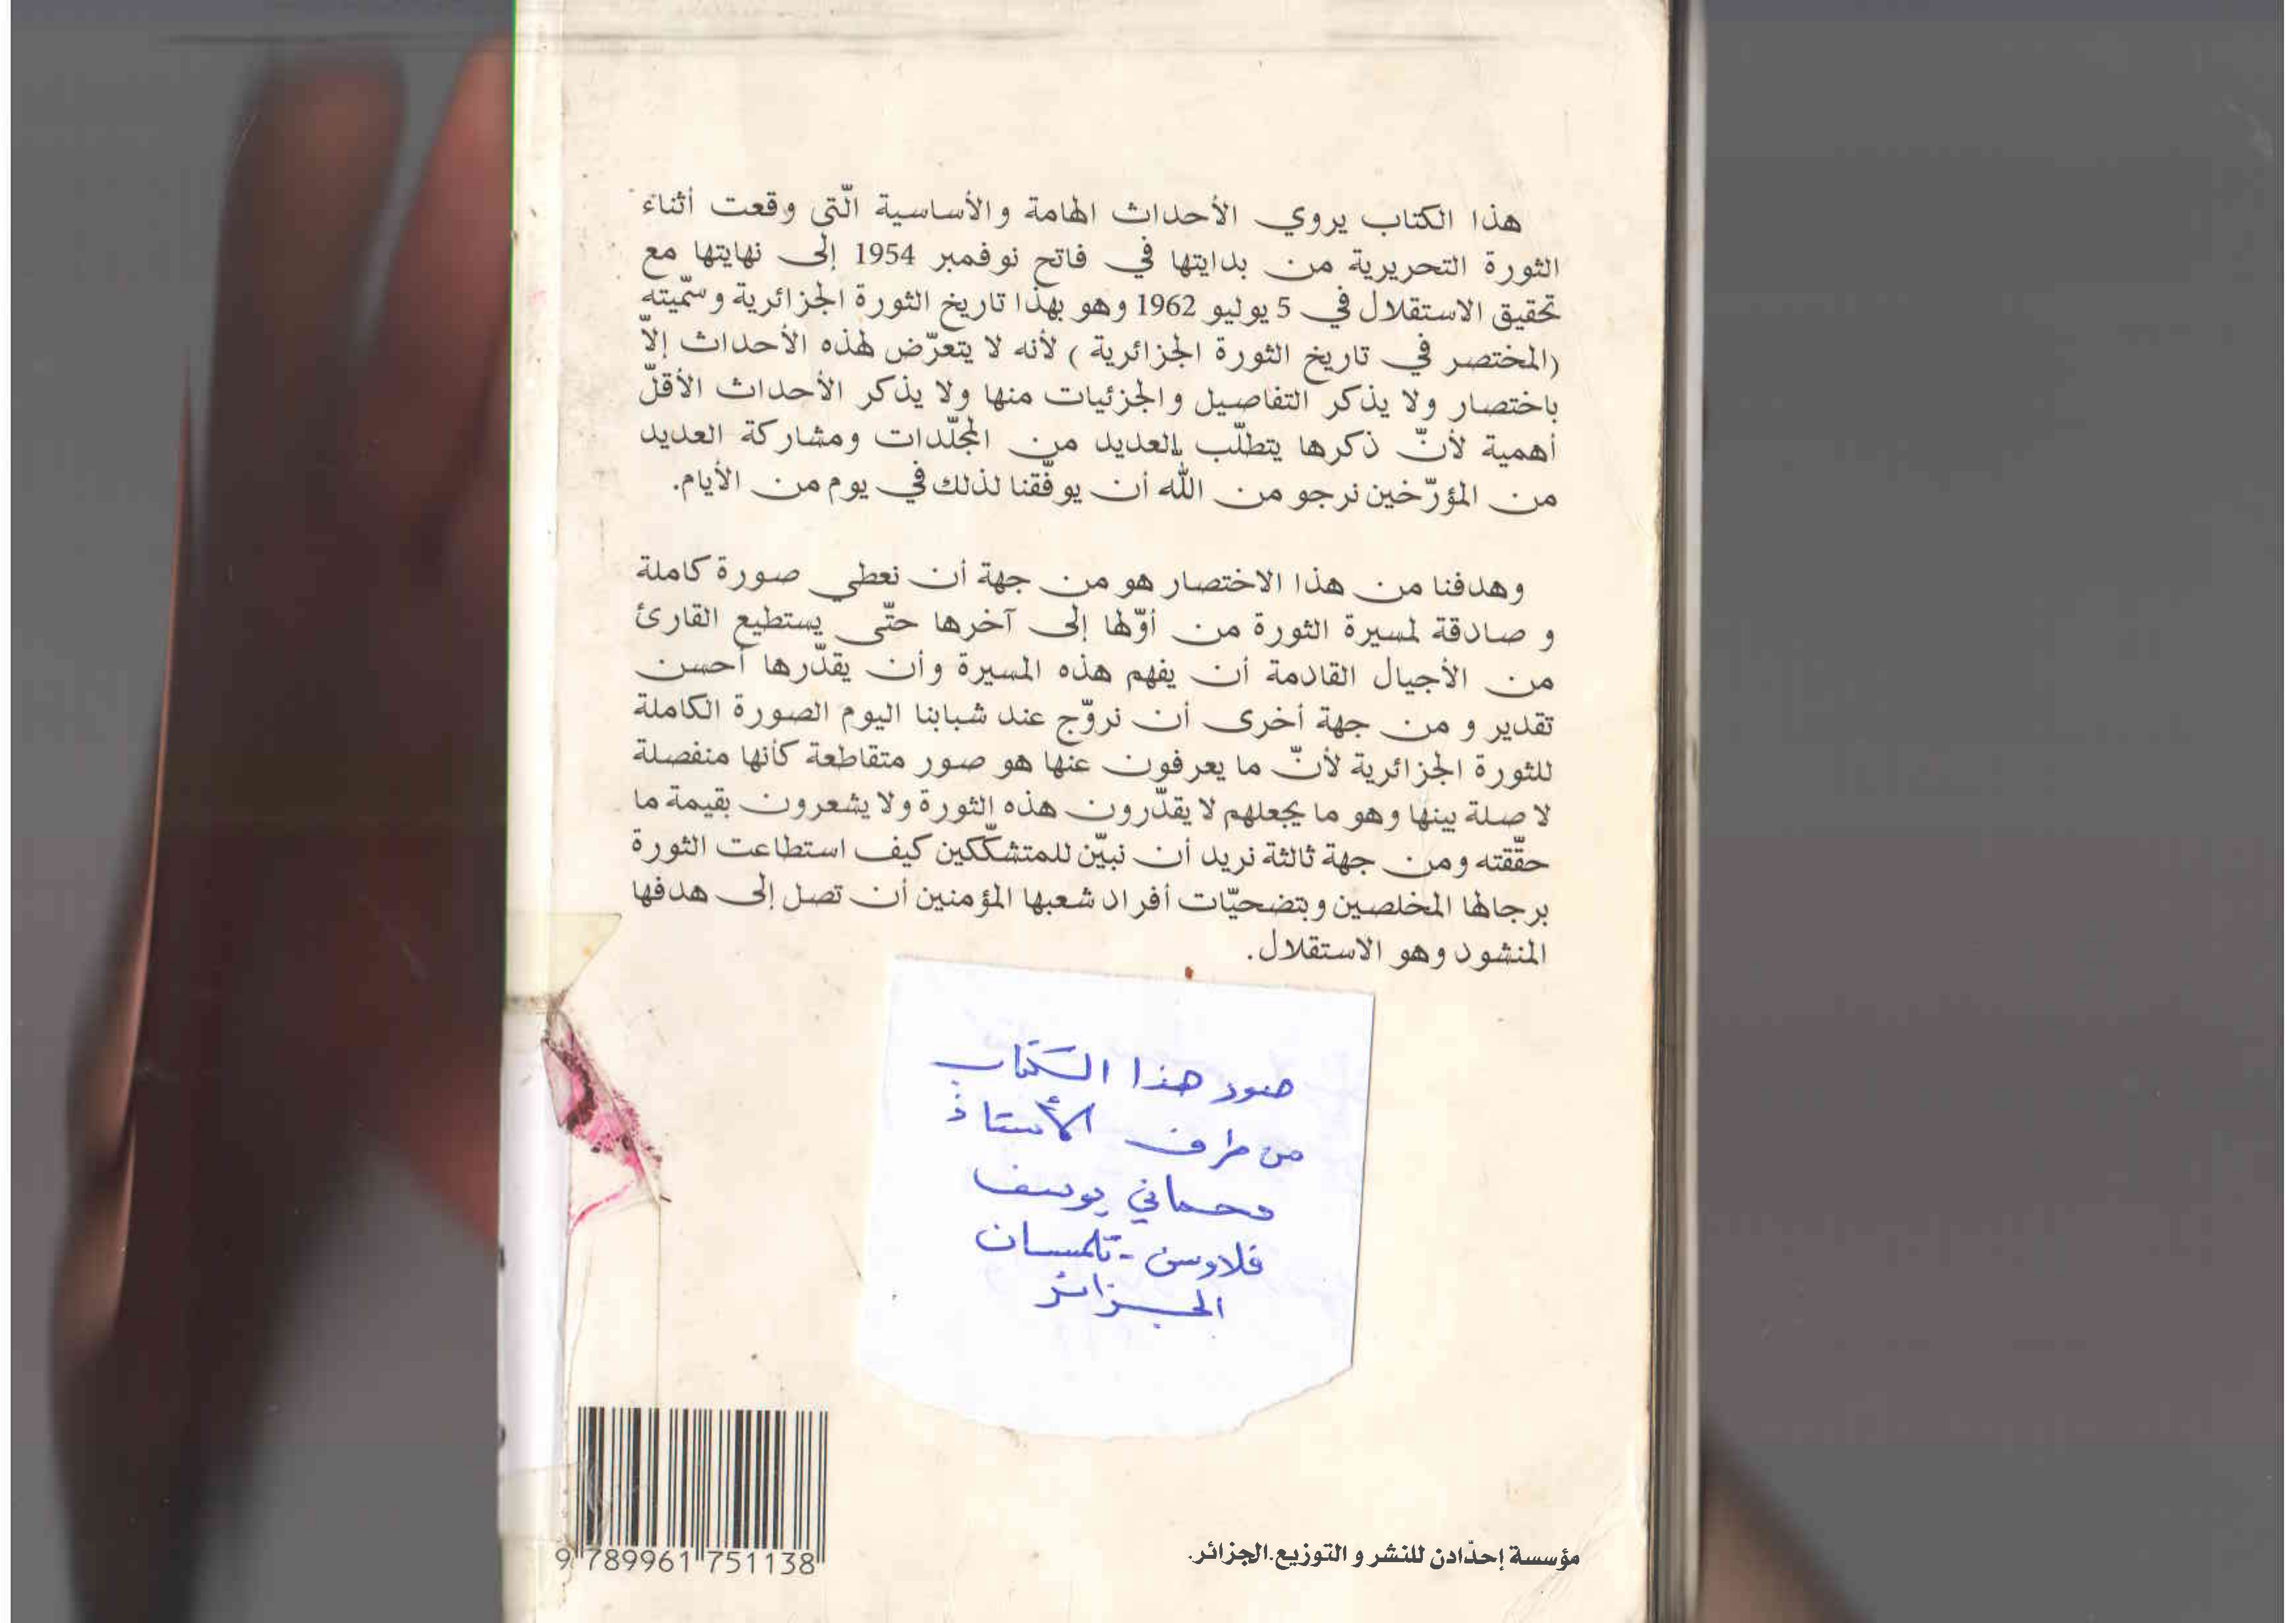 هذا الكتاب يروي الأحداث الهامة والأساسية الّتي وقعت أثناء
الثورة التحريرية من بدايتها في فاتح نوفمبر 1954 إلى نهايتها مع
تحقيق الاستقلال في 5 يوليو 1962 وهو بهذا تاريخ الثورة الجزائرية وسمّيته
(المختصر في تاريخ الثورة الجزائرية ) لأنه لا يتعرّض لهذه الأحداث إلاّ
باختصار ولا يذكر التفاصيل والجزئيات منها ولا يذكر الأحداث الأقلّ
أهمية لأنّ ذكرها يتطلّب العديد من المجلّدات ومشاركة العديد
من المؤرّخين نرجو من الله أن يوفّقنا لذلك في يوم من الأيام.
وهدفنا من هذا الاختصار هو من جهة أن نعطي صورة كاملة
و صادقة لمسيرة الثورة من أوّلها إلى آخرها حتّى يستطيع القارئ
من الأجيال القادمة أن يفهم هذه المسيرة وأن يقدّرها أحسن
تقدير و من جهة أخرى أن نروّج عند شبابنا اليوم الصورة الكاملة
للثورة الجزائرية لأنّ ما يعرفون عنها هو صور متقاطعة كأنها منفصلة
لا صلة بينها وهو ما يجعلهم لا يقدّرون هذه الثورة ولا يشعرون بقيمة ما
حقّقته ومن جهة ثالثة نريد أن نبيّن للمتشكّكين كيف استطاعت الثورة
برجالها المخلصين وبتضحيّات أفراد شعبها المؤمنين أن تصل إلى هدفها
المنشود وهو الاستقلال.
صور هذا الكتاب
من طرف الأستاذ
يوسف
فلاوسن - تلمسان
الجزائر
9 789961 751138
مؤسسة إحدّادن للنشر و التوزيع.الجزائر.